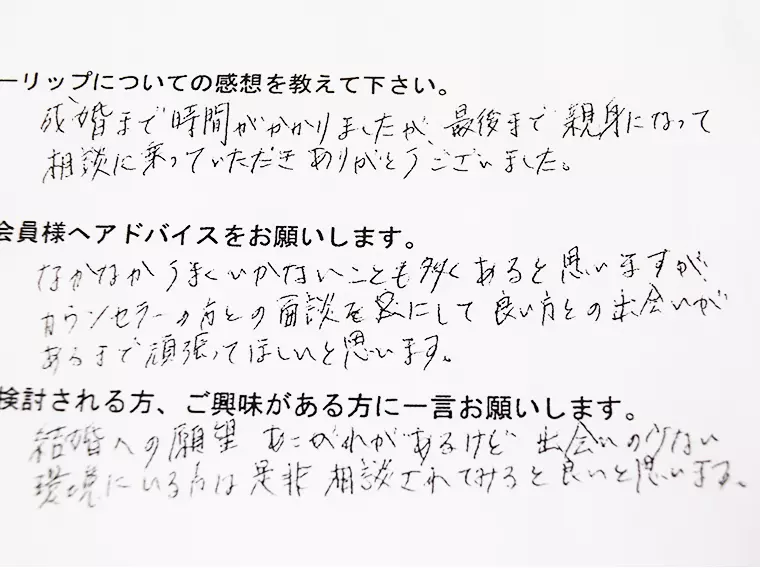 ーリップについての感想を教えて下さい。
成婚まで時間がかかりましたが、最後まで親身になって
相談に乗っていただきありがとうございました。
会員様へアドバイスをお願いします。
なかなかうまくいかないことも多くあると思いますが
カウンセラーの方との面談を密にして良い方との出会いが
あるまで頑張ってほしいと思います。
検討される方、ご興味がある方に一言お願いします。
結婚への願望 あこがれがあるけど 出会いの少ない
環境にいる方は是非相談されてみると良いと思います。